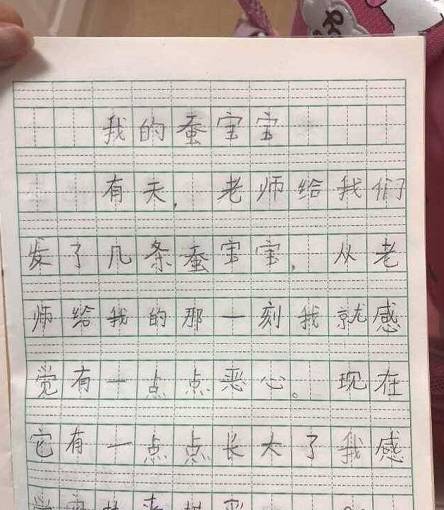 我的蚕宝宝
有天,老师给我们
发了几条蚕宝宝,从老
师给我的那一刻我就感
觉有一点点恶心。现在
它有一点点长大了我感